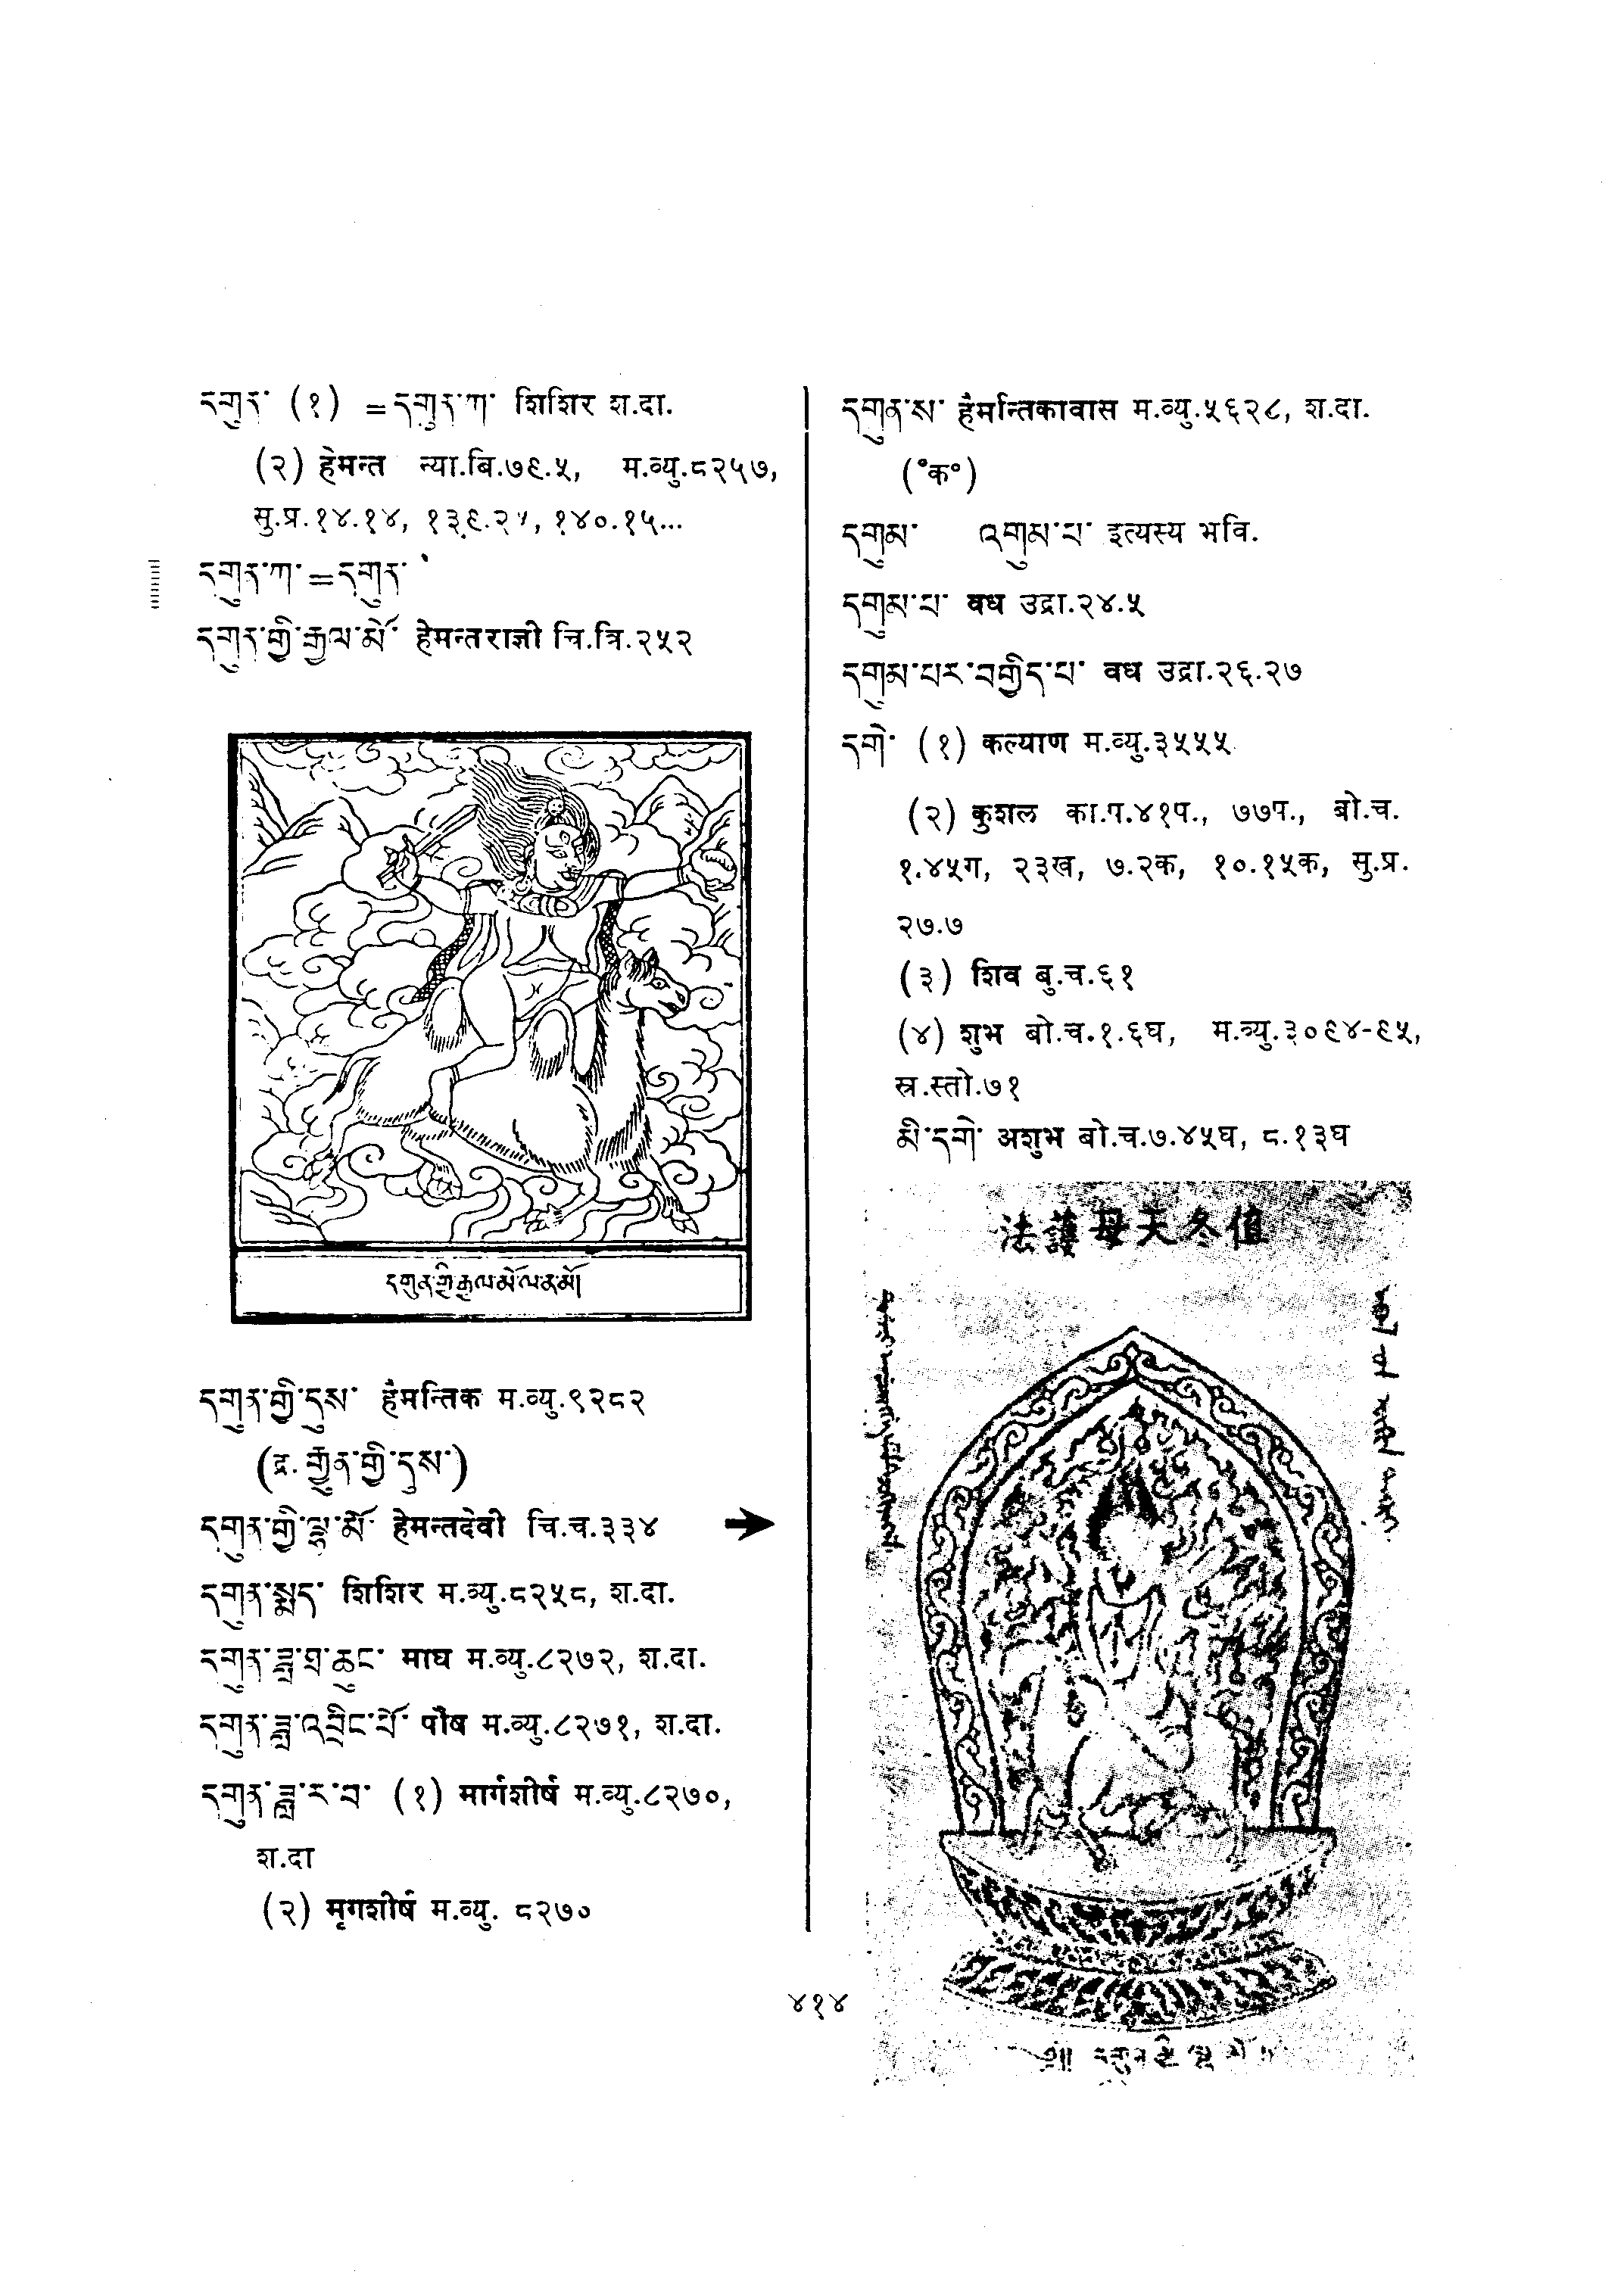 དགུན་ (१) =དགུན་ཀ་ शिशिर श.दा.
(२) हेमन्त न्या.बि.७९.५, म.व्यु.८२५७,
सु.प्र.१४.१४, १३९.२५, १४०.१५...
དགུན་ཀ་=དགུན་
དགུན་གྱི་རྒྱལ་མོ་ हेमन्तराज्ञी चि.त्रि.२५२
དགུན་གྱི་རྒྱལ་མོ་ལ་ན་མོ།
དགུན་གྱི་དུས་ हैमन्तिक म.व्यु.९२८२
(द्र. རྒྱུན་གྱི་དུས་)
དགུན་གྱི་ལྷ་མོ་ हेमन्तदेवी चि.च.३३४
དགུན་སྨད་ शिशिर म.व्यु.८२५८, श.दा.
དགུན་ཟླ་ཐ་ཆུང་ माघ म.व्यु.८२७२, श.दा.
དགུན་ཟླ་འབྲིང་པོ་ पौष म.व्यु.८२७१, श.दा.
དགུན་ཟླ་ར་བ་ (१) मार्गशीर्ष म.व्यु.८२७०,
श.दा
(२) मृगशीर्ष म.व्यु. ८२७०
དགུན་ས་ हैमन्तिकावास म.व्यु.५६२८, श.दा.
(°क°)
དགུམ་ འགུམ་པ་ इत्यस्य भवि.
དགུམ་པ་ वध उद्रा.२४.५
དགུམ་པར་བགྱིད་པ་ वध उद्रा.२६.२७
དགེ་ (१) कल्याण म.व्यु.३५५५
(२) कुशल का.प.४१प., ७७प., बो.च.
१.४५ग, २३ख, ७.२क, १०.१५क, सु.प्र.
२७.७
(३) शिव बु.च.६१
(४) शुभ बो.च.१.६घ, म.व्यु.३०९४-९५,
स्र.स्तो.७१
མི་དགེ་ अशुभ बो.च.७.४५घ, ८.१३घ
法護母天冬值
༄༅།། དགུན་གྱི་ལྷ་མོ།
४१४